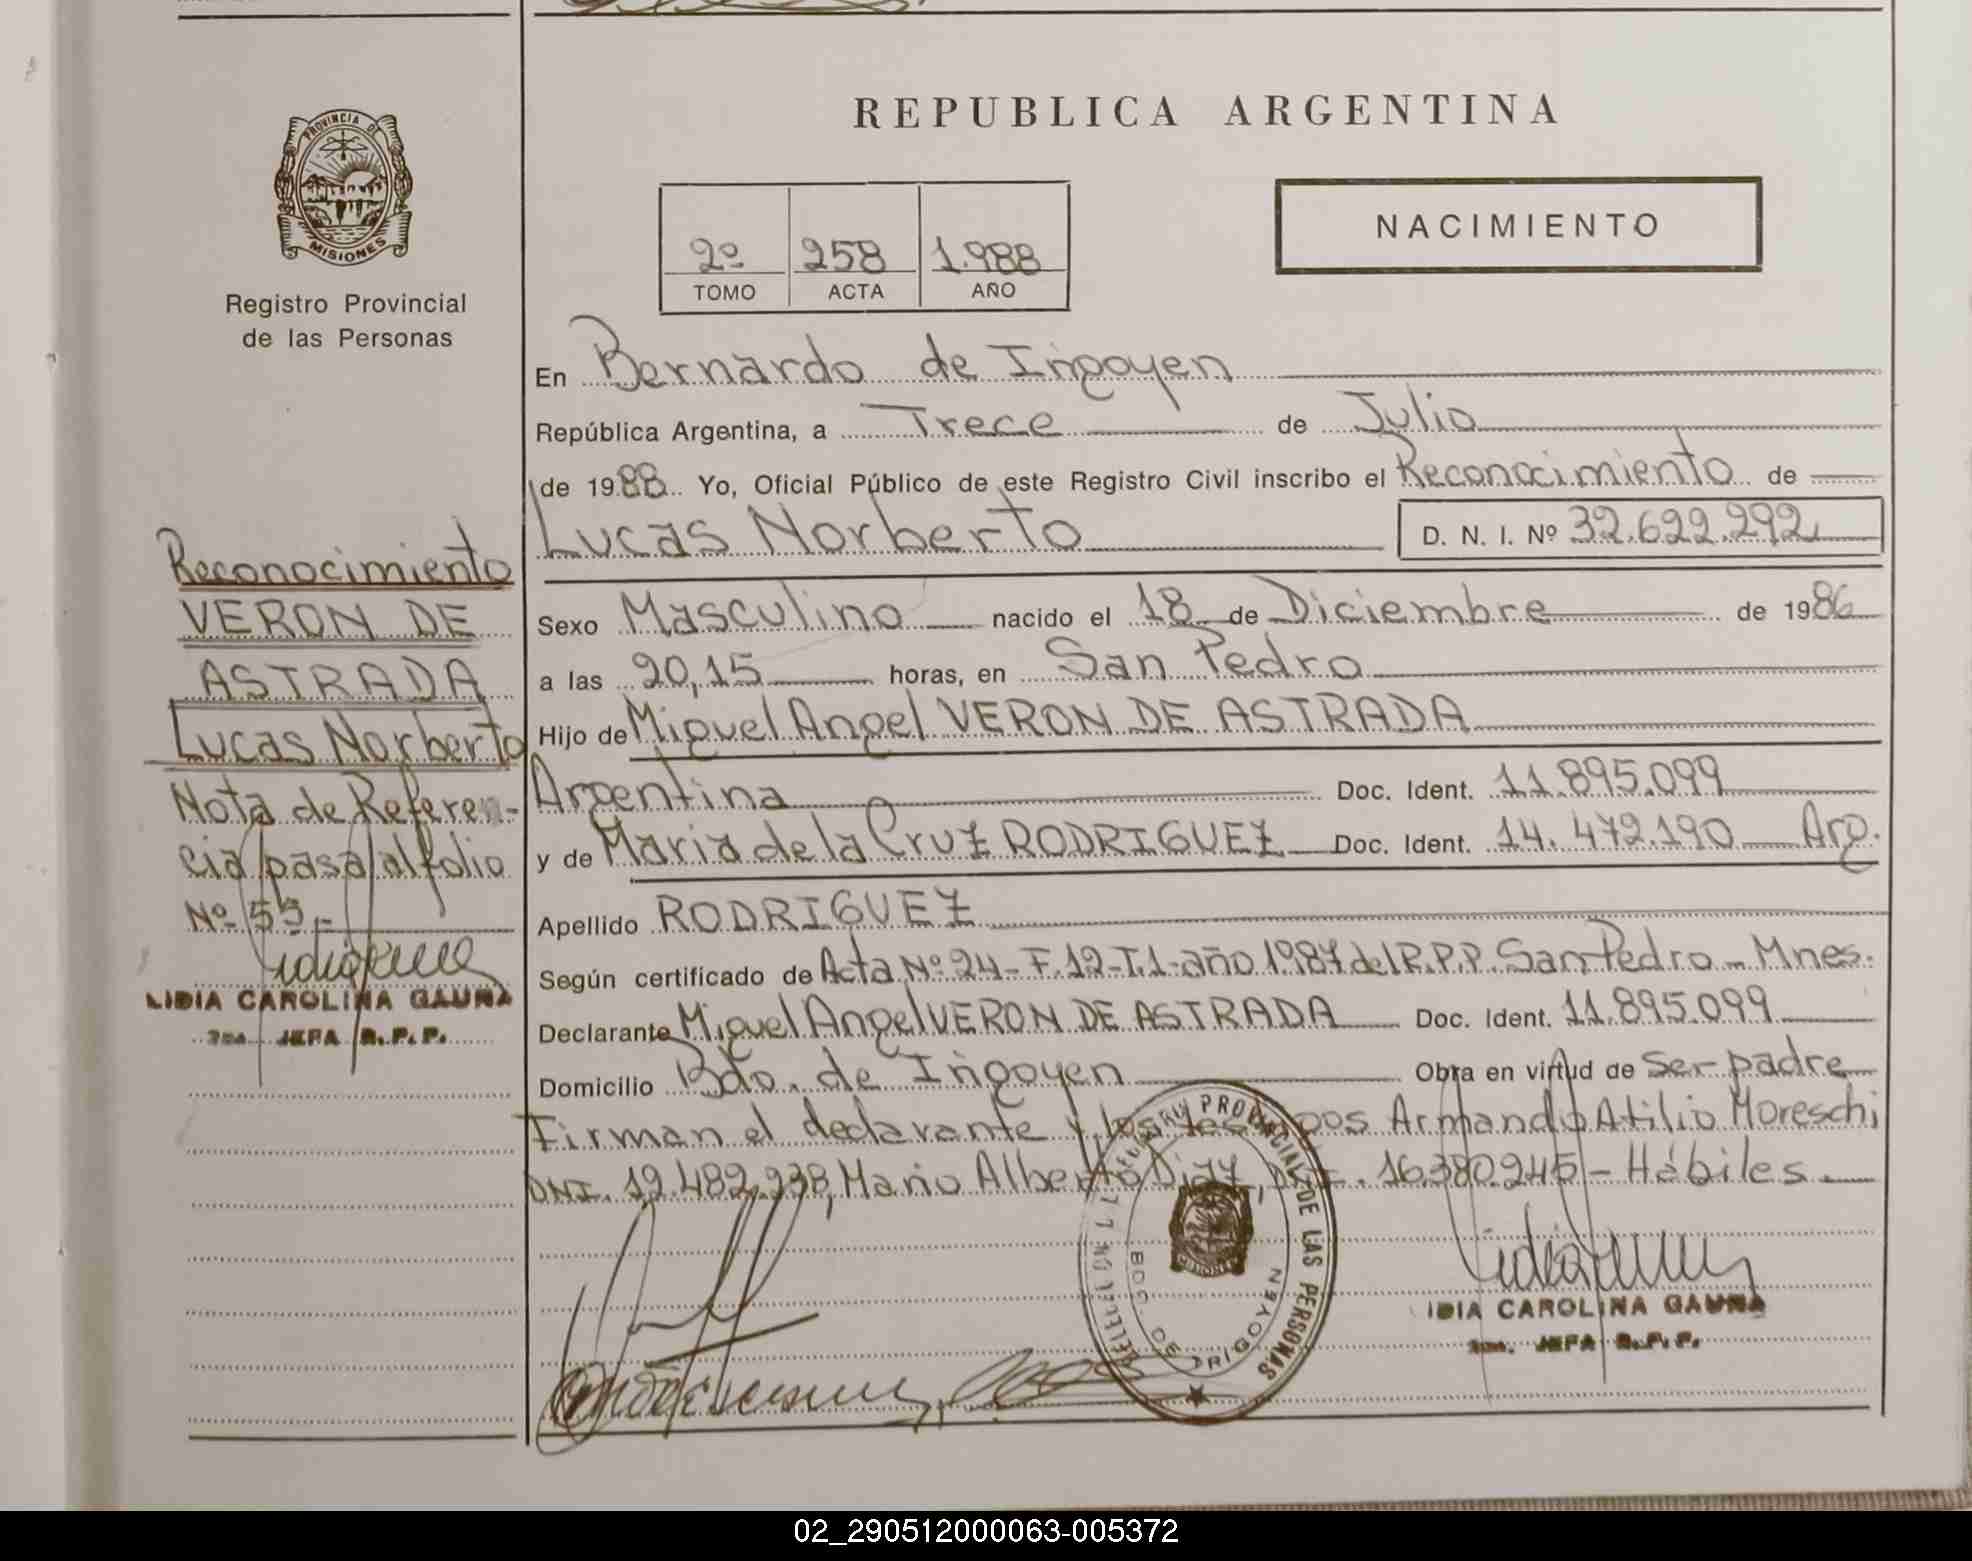 PROVINCIA DE
MISIONES
Registro Provincial
de las Personas
REPUBLICA ARGENTINA
NACIMIENTO
2º 258 1.988
TOMO ACTA AÑO
En Bernardo de Irigoyen
República Argentina, a Trece de Julio
de 1988 Yo, Oficial Público de este Registro Civil inscribo el Reconocimiento de
Lucas Norberto D. N. I. Nº 32.622.292
Sexo Masculino nacido el 18 de Diciembre de 1986
a las 20,15 horas, en San Pedro
Hijo de Miguel Angel VERON DE ASTRADA
Argentina Doc. Ident. 11.895.099
y de Maria de la Cruz RODRIGUEZ Doc. Ident. 14.472.190 Arg.
Apellido RODRIGUEZ
Según certificado de Acta Nº 24-F.12-T.1-año 1987 del R.P.P. San Pedro - Mnes.
Declarante Miguel Angel VERON DE ASTRADA Doc. Ident. 11.895.099
Domicilio Bdo. de Irigoyen Obra en virtud de ser padre
Firman el declarante y los testigos Armando Atilio Moreschi
DNI. 12.482.938, Mario Alberto Diaz, DNI. 16.380.245 - Hábiles.
Reconocimiento
VERON DE
ASTRADA
Lucas Norberto
Nota de Referen-
cia pasa al folio
Nº 59-
LIDIA CAROLINA GAUNA
JEFA R.P.P.
PROVINCIAL DE LAS PERSONAS
BDO. DE IRIGOYEN
MISIONES
LIDIA CAROLINA GAUNA
JEFA R.P.P.
02_290512000063-005372